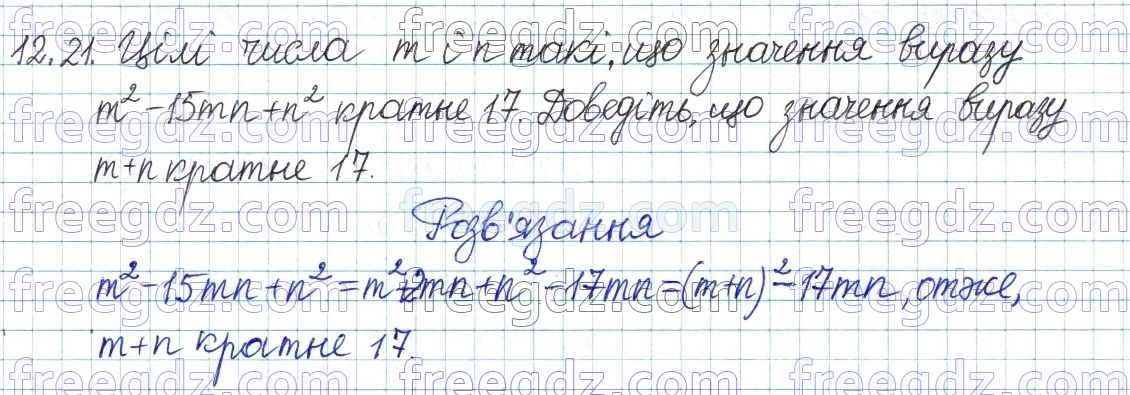 12.21. Цілі числа m і n такі, що значення виразу
m² - 15mn + n² кратне 17. Доведіть, що значення виразу
m+n кратне 17.
Розв'язання
m² - 15mn + n² = m² + 2mn + n² - 17mn = (m+n)² - 17mn, отже,
m+n кратне 17.
freegdz.com